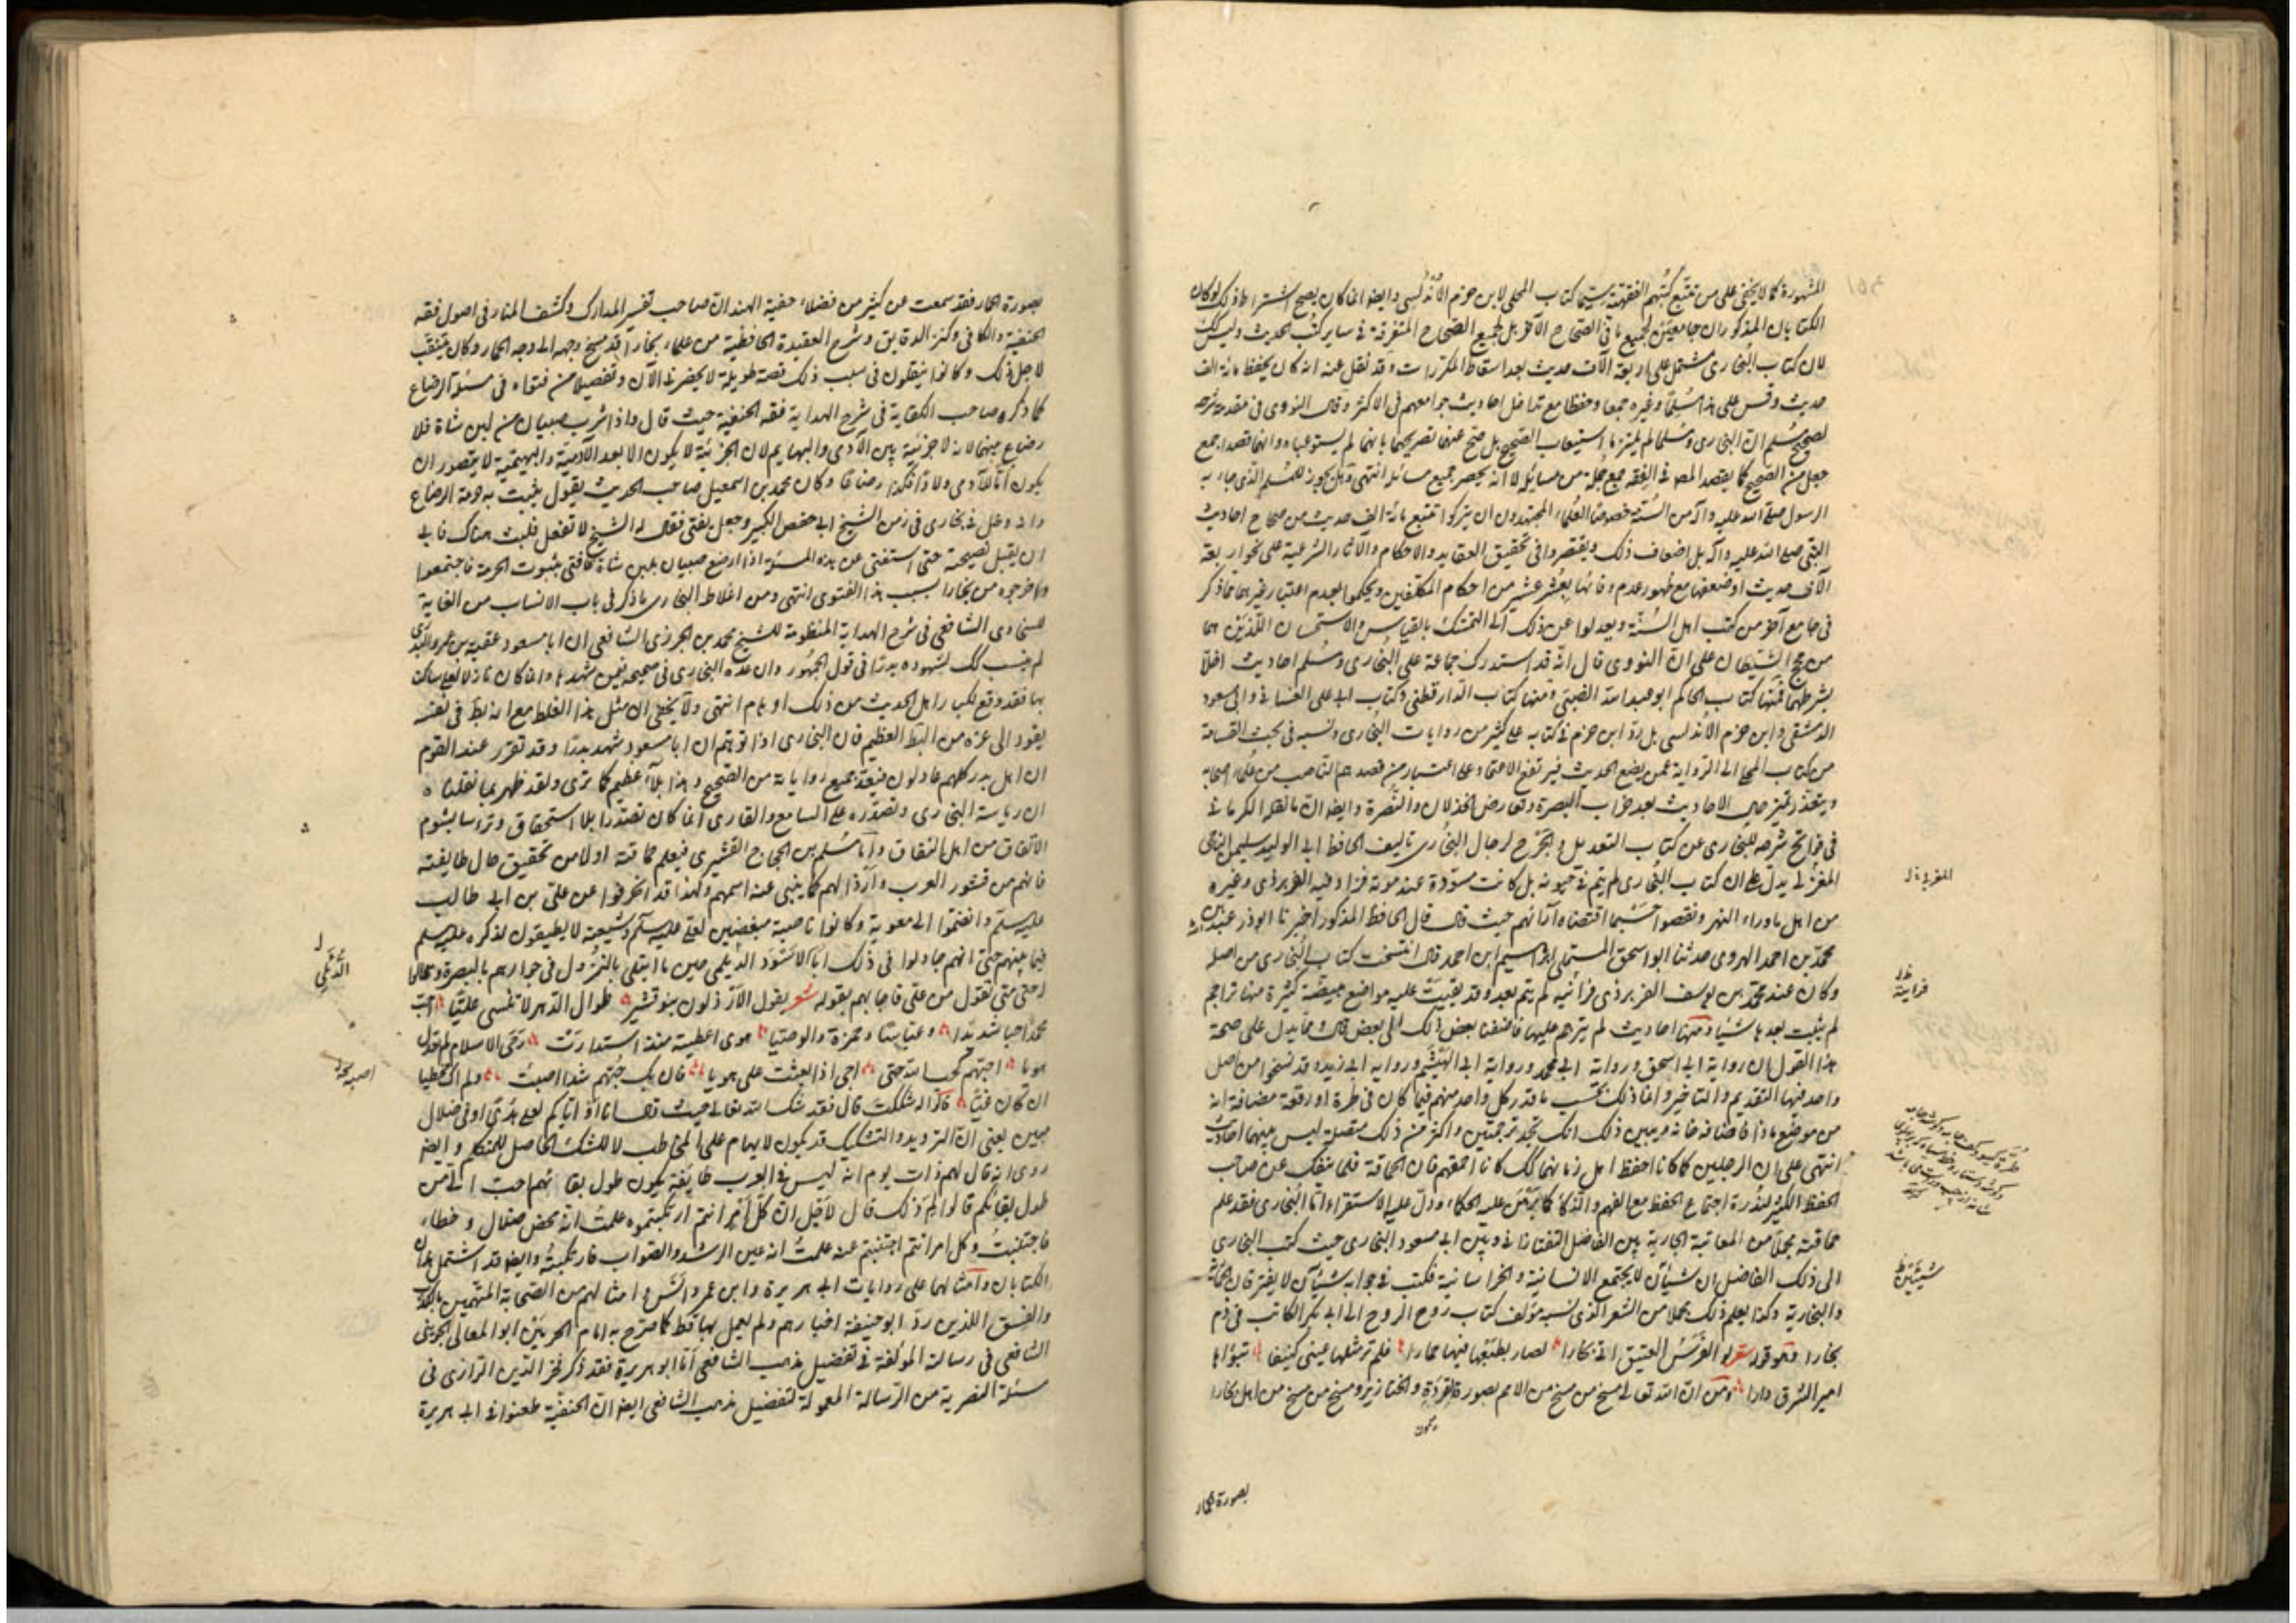 المشهورة كما لا يخفى على من تتبع كتبهم الفقهية سيما كتاب المحلى لابن حزم الأندلسي وايضا انما كان يصح اشتراط ذلك لو كان
الكتابان المذكوران جامعين لجميع ما في الصحاح الآخر بل لجميع الصحاح المتفرقة في ساير كتب الحديث وليس كك
لان كتاب البخاري مشتمل على اربعة آلاف حديث بعد اسقاط المكررات وقد نقل عنه انه كان يحفظ مائة الف
حديث وقس على هذا مسلما وغيره جمعا وحفظا مع تداخل احاديث جوامعهم في الاكثر وقال النووي في مقدمة شرحه
لصحيح مسلم ان البخاري ومسلما لم يلتزما استيعاب الصحيح بل صح عنهما تصريحهما بانهما لم يستوعباه وانما قصدا جمع
جمل من الصحيح كما يقصد المصنف في الفقه جمع جملة من مسائله لا انه يحصر جميع مسائله انتهى وهل يجوز للمسلم الذي جاء به
الرسول صلى الله عليه وآله من السنة خصوصا العلماء المجتهدون ان يتركوا تتبع مائة الف حديث من صحاح احاديث
النبي صلى الله عليه وآله بل اضعاف ذلك ويقتصروا في تحقيق العقايد والاحكام والآثار الشرعية على نحو اربعة
آلاف حديث او ضعفها مع ظهور عدم وفائها بعشر عشر من احكام المكلفين ويحكموا بعدم اعتبار غيرها مما ذكر
في جامع آخر من كتب اهل السنة ويعدلوا عن ذلك الى التمسك بالقياس والاستحسان اللذين هما
من حجج الشيطان على ان النووي قال انه قد استدرك جماعة على البخاري ومسلم احاديث اخلا
بشرطهما فمنها كتاب الحاكم ابو عبد الله الضبي ومنها كتاب الدارقطني وكتاب ابي علي الغساني وابي مسعود
الدمشقي وابن حزم الاندلسي بل رد ابن حزم في كتابه على كثير من روايات البخاري ونسبه في بحث القسامة
من كتاب المحلى الى الرواية عمن يضع الحديث فيرتفع الاعتماد على
ويتعذر تميز صحيح الاحاديث بعد خراب البصرة وتعارض الخذلان والنصرة وايضا ان ما نقله الكرماني
في فواتح شرحه للبخاري عن كتاب التعديل والجرح لرجال البخاري تاليف الحافظ ابي الوليد سليمان الباجي
المغربي يدل على ان كتاب البخاري لم يتم في حيوته بل كانت مسودة عند موته فزاد فيه الفربري وغيره
من اهل ماوراء النهر ونقصوا حسبما اقتضاه آرائهم حيث قال قال الحافظ المذكور اخبرنا ابو ذر عبد بن
محمد بن احمد الهروي حدثنا ابو اسحق المستملي ابراهيم ابن احمد قال انتسخت كتاب البخاري من اصله
وكان عند محمد بن يوسف الفربري فرأيته لم يتم بعد وقد بقيت عليه مواضع مبيضة كثيرة منها تراجم
لم يثبت بعدها شيئا ومنها احاديث لم يترجم عليها فاضفنا بعض ذلك الى بعض قال مما يدل على صحة
هذا القول ان رواية ابي اسحق ورواية ابي محمد ورواية ابي الهيثم ورواية ابي زيد وقد نسخوا من اصل
واحد فيها التقديم والتاخير وانما ذلك بحسب ما قدر كل واحد منهم فيما كان في طرة او رقعة مضافة انه
من موضع ما فاضافه فيه ويبين ذلك انك تجد ترجمتين واكثر من ذلك متصلة ليس بينهما احاديث
انتهى على ان الرجلين كما كانا احفظ اهل زمانهما كك كانا احمقهم فان الحماقة قلما تنفك عن صاحب
الحفظ الكثير لندرة اجتماع الحفظ مع الفهم والذكاء كما برهن عليه الحكماء ودل عليه الاستقراء اما البخاري فقد علم
حماقته مجملا من المعاتبة الجارية بين الفاضل التفتازاني وبين ابي مسعود البخاري حيث كتب البخاري
الى ذلك الفاضل ان شيئان لا يجتمع الانسانية والخراسانية فكتب في جوابه شيئان لا يفترقان الحمارية
والبخارية وكذا يعلم ذلك مجملا من الشعر الذي نسبه مؤلف كتاب روح الروح الى ابي بكر الكاتب في ذم
بخارا وهو قوله شعر لو الفرس العتيق اتى بخارا لصار بطبعها فيها حمارا فلم تر مثلها عيني كنيفا تبوأها
امير الشرق دارا ومن ان الله تعالى مسخ من مسخ من الامم بصورة القردة والخنازير ومسخ من مسخ من اهل بخارا
بصورة الحمار
المغربي ل
شيئين ظ
بصورة الحمار فقد سمعت عن كثير من فضلاء حنفية الهند ان صاحب تفسير المدارك وكشف المنار في اصول فقه
الحنفية والكافي وكنز الدقايق وشرح العقيدة الحافظية من علماء بخارا قد مسخ وجهه الى وجه الحمار وكان يتنقب
لاجل ذلك وكانوا ينقلون في سبب ذلك قصة طويلة لا يحضرني الآن وتفصيلا من فتواه في مسئلة الرضاع
كما ذكره صاحب الكفاية في شرح الهداية فقه الحنفية حيث قال واذا شرب صبيان من لبن شاة فلا
رضاع بينهما لانه لا جزئية بين الآدمي والبهايم لان الجزئية لا يكون الا بعد الآدمية والبهيمية لا يتصور ان
يكون اما للآدمي ولادا فكذا رضاعا وكان محمد بن اسمعيل صاحب الحديث يقول يثبت به حرمة الرضاع
وانه دخل في بخارى في زمن الشيخ ابي حفص الكبير وجعل يفتي فقال له الشيخ لا تفعل فلبث هناك فابى
ان يقبل نصيحته حتى استفتي عن هذه المسئلة اذا ارضع صبيان بلبن شاة فافتى بثبوت الحرمة فاجتمعوا
واخرجوه من بخارا بسبب هذا الفتوى انتهى ومن اغلاط البخاري ما ذكر في باب الانساب من الغاية
للسخاوي الشافعي في شرح الهداية المنظومة للشيخ محمد بن الجزري الشافعي ان ابا مسعود عقبة بن عمرو البدري
لم ينسب كك لشهوده بدرا في قول الجمهور وان عده البخاري في صحيحه فيمن شهدها وانما كان نازلا ساكنا
بها فقد وقع لكبار اهل الحديث من ذلك اوهام انتهى ولا يخفى ان مثل هذا الغلط مع انه بط في نفسه
يقود الى غيره من البط العظيم فان البخاري اذا توهم ان ابا مسعود شهد بدرا وقد تقرر عند القوم
ان اهل بدر كلهم عادلون فيعد جميع رواياته من الصحيح وهذا بلاء عظيم كما ترى ولقد ظهر بما نقلناه
ان رياسة البخاري وتصدره على السامع والقاري انما كان تصدرا بلا استحقاق وترأسا بشوم
الاتفاق من اهل النفاق واما مسلم بن الحجاج القشيري فيعلم حماقته اولا من تحقيق حال طايفته
فانهم من قشور العرب وأرذالهم كما ينبي عنه اسمهم ولهذا قد انحرفوا عن علي بن ابي طالب
عليه السلم وانضموا الى معوية وكانوا ناصبة مبغضين لعلي عليه السلم وشيعته لا يطيقون لذكره عليه السلم
فيما بينهم حتى انهم جادلوا في ذلك ابا الاسود الديلمي حين ما ابتلي بالنزول في جوارهم بالبصرة وقالوا
حتى متى تقول من علي فاجابهم بقوله شعر يقول الارذلون بنو قشير طوال الدهر لا تنسى عليا احب
محمدا حبا شديدا وعباسا وحمزة والوصيا هوى اعطيته منذ استدارت رحى الاسلام لم يعدل
هويا احبهم كحب الله حتى اجي اذا بعثت على هويا فان يك حبهم رشدا اصبت ولم اك مخطيا
ان كان غيا قالوا له شككت قال فقد شك الله تعالى حيث قال انا او اياكم لعلى هدى او في ضلال
مبين يعني ان الترديد والتشكيك قد يكون لابهام على المخاطب لا للشك الحاصل للمتكلم وايضا
روي انه قال لهم ذات يوم انه ليس في العرب طايفة يكون طول بقائهم احب الي من
طول بقائكم قالوا لم ذلك قال لاجل ان كل امر انتم ارتكبتموه علمت انه محض ضلال وخطاء
فاجتنبت وكل امر انتم اجتنبتم عنه علمت انه عين الرشد والصواب فارتكبته وايضا قد اشتمل هذان
الكتابان وامثالهما على روايات ابي هريرة وابن عمر وانس وامثالهم من الصحابة المتهمين بالكذب
والفسق اللذين رد ابو حنيفة اخبارهم ولم يعمل بها قط كما صرح به امام الحرمين ابو المعالي الجويني
الشافعي في رسالته المؤلفة في تفضيل مذهب الشافعي اما ابو هريرة فقد ذكر فخر الدين الرازي في
مسئلة التصرية من الرسالة المعمولة لتفضيل مذهب الشافعي ايضا ان الحنفية طعنوا في ابي هريرة
الدئلي